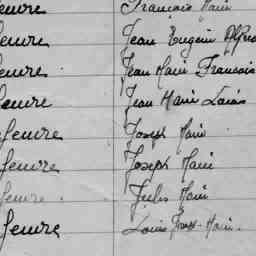 feuvre François Marie
feuvre Jean Eugène Alfred
feuvre Jean Marie François
feuvre Jean Marie Louis
feuvre Joseph Marie
feuvre Joseph Marie
feuvre Jules Marie
feuvre Louis Joseph Marie